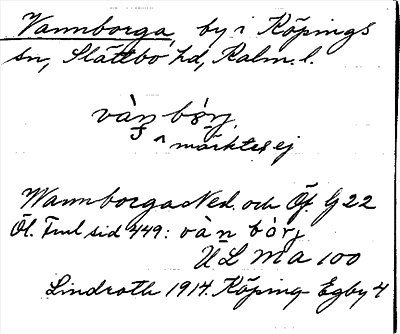 Vannborga, by i Köpings
sn, Slättbo hd, Kalm. l.
vàn bòrj
^ märktes ej
Wannborga Ned. och Öf. G 22
Öl. Furl sid 449: vàn bòrj
ÜLMA 100
Lindroth 1914. Köping Egby 4